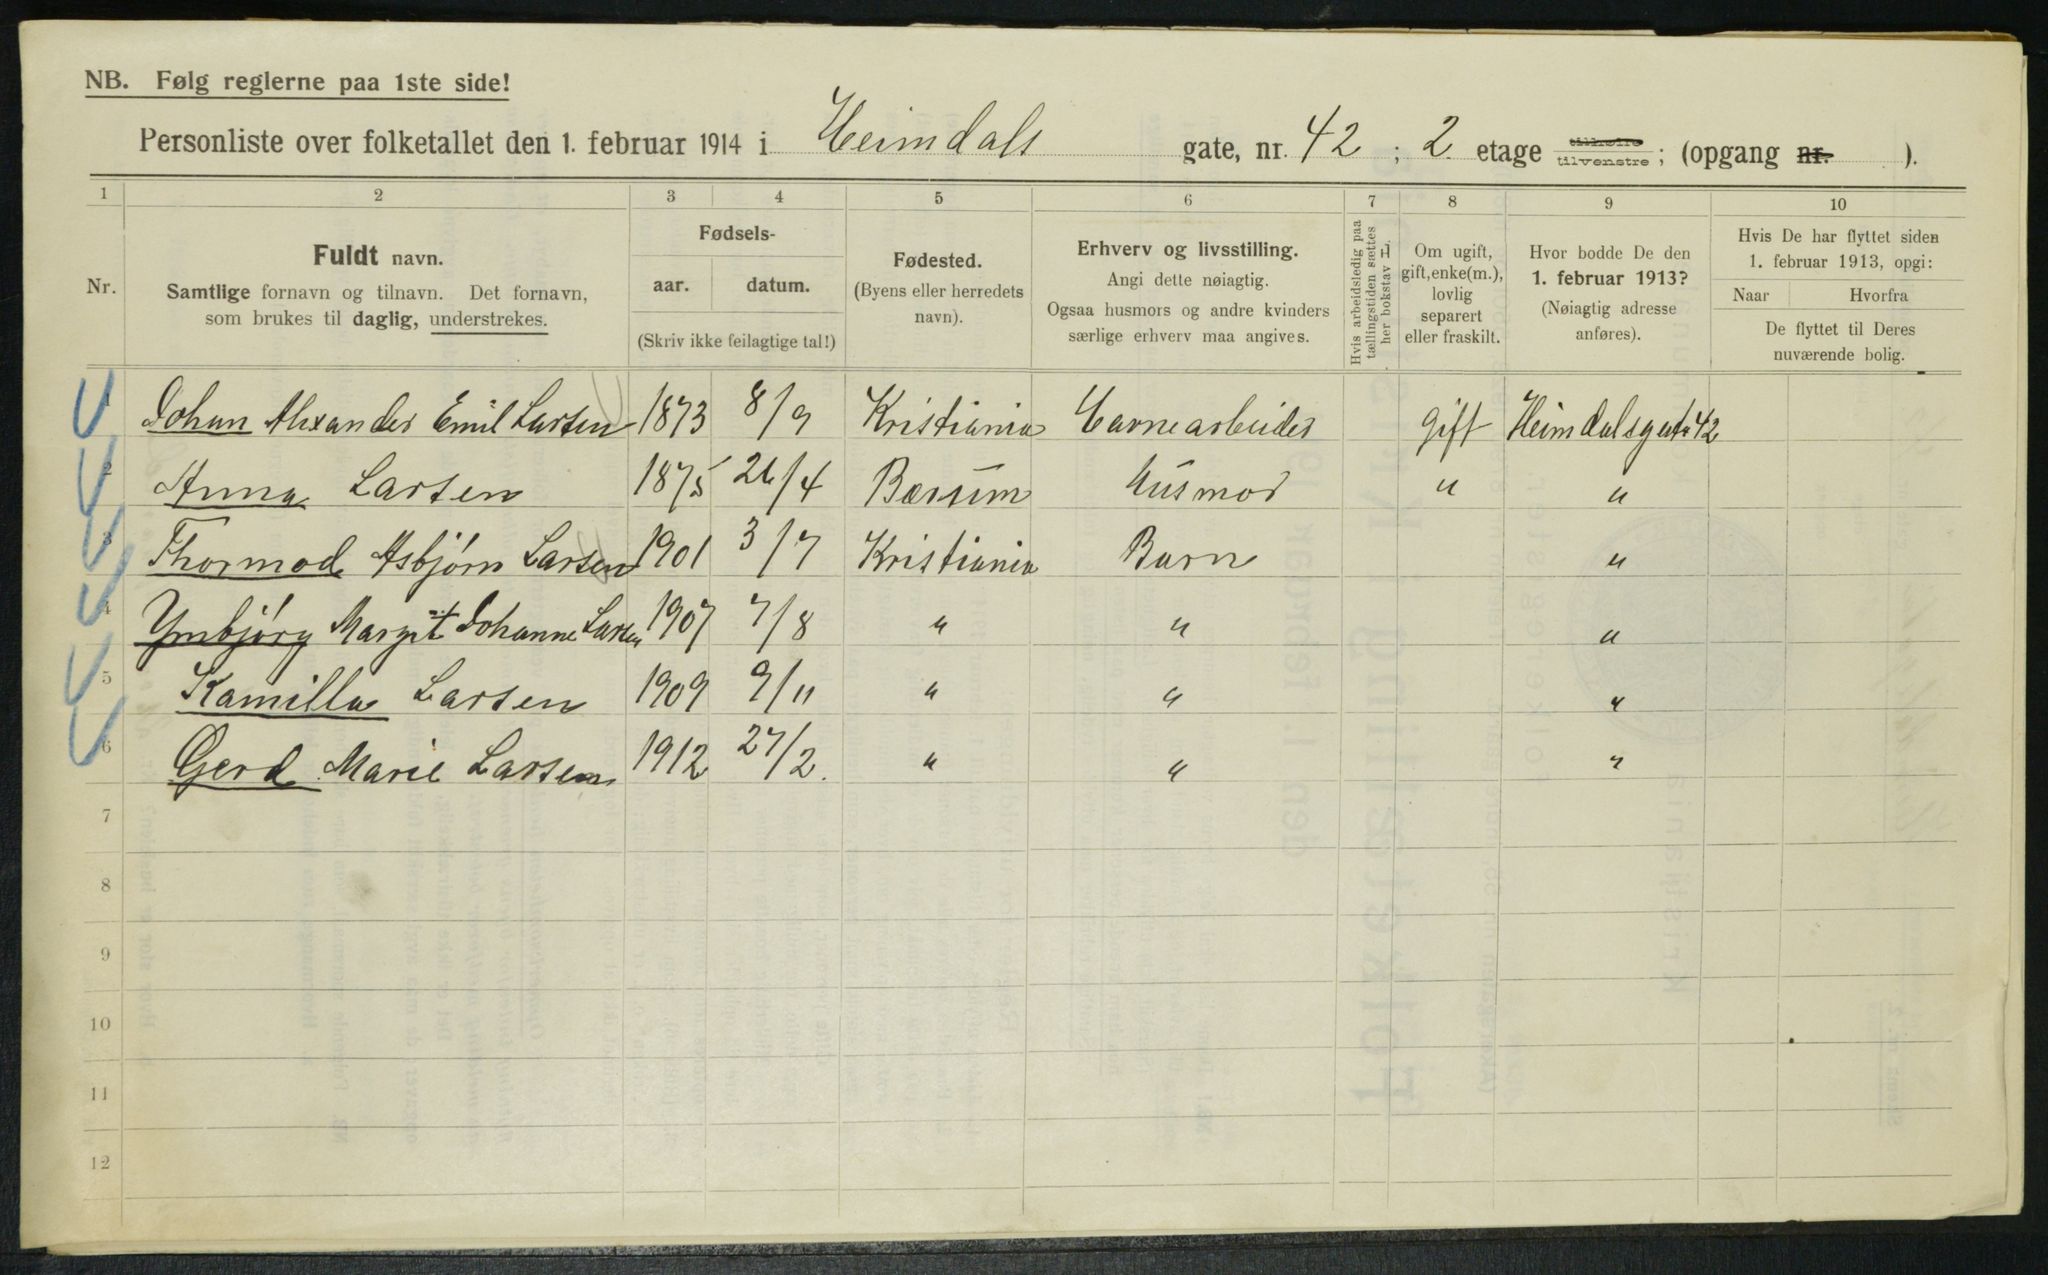 NB. Følg reglerne paa 1ste side!
Personliste over folketallet den 1. februar 1914 i Heimdals gate, nr. 42 ; 2. etage tilhøire tilvenstre ; (opgang nr. ).
1 2 3 4 5 6 7 8 9 10
Nr.
Fuldt navn.
Samtlige fornavn og tilnavn. Det fornavn,
som brukes til daglig, understrekes.
Fødsels-
aar. datum.
(Skriv ikke feilagtige tal!)
Fødested.
(Byens eller herredets
navn).
Erhverv og livsstilling.
Angi dette nøiagtig.
Ogsaa husmors og andre kvinders
særlige erhverv maa angives.
Hvis arbeidsledig paa
tællingstiden sættes
her bokstav L.
Om ugift,
gift, enke(m.),
lovlig
separert
eller fraskilt.
Hvor bodde De den
1. februar 1913?
(Nøiagtig adresse
anføres).
Hvis De har flyttet siden
1. februar 1913, opgi:
Naar Hvorfra
De flyttet til Deres
nuværende bolig.
1 Johan Alexander Emil Larsen 1873 8/9 Kristiania Havnearbeider gift Heimdalsgate 42
2 Anna Larsen 1875 26/4 Bærum Husmor " "
3 Thormod Asbjørn Larsen 1901 3/7 Kristiania Barn "
4 Ymbjørg Margit Johanne Larsen 1907 7/8 " " "
5 Kamilla Larsen 1909 9/11 " " "
6 Gerd Marie Larsen 1912 27/2. " " "
7
8
9
10
11
12